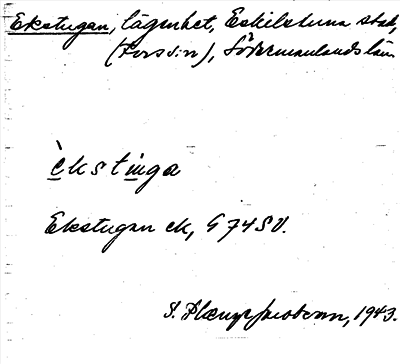 Ekstugan, lägenhet, Eskilstuna stad,
(Fors sn), Södermanlands län
èkstinga
Ekstugan ek, G 74 SV.
S. 1943.